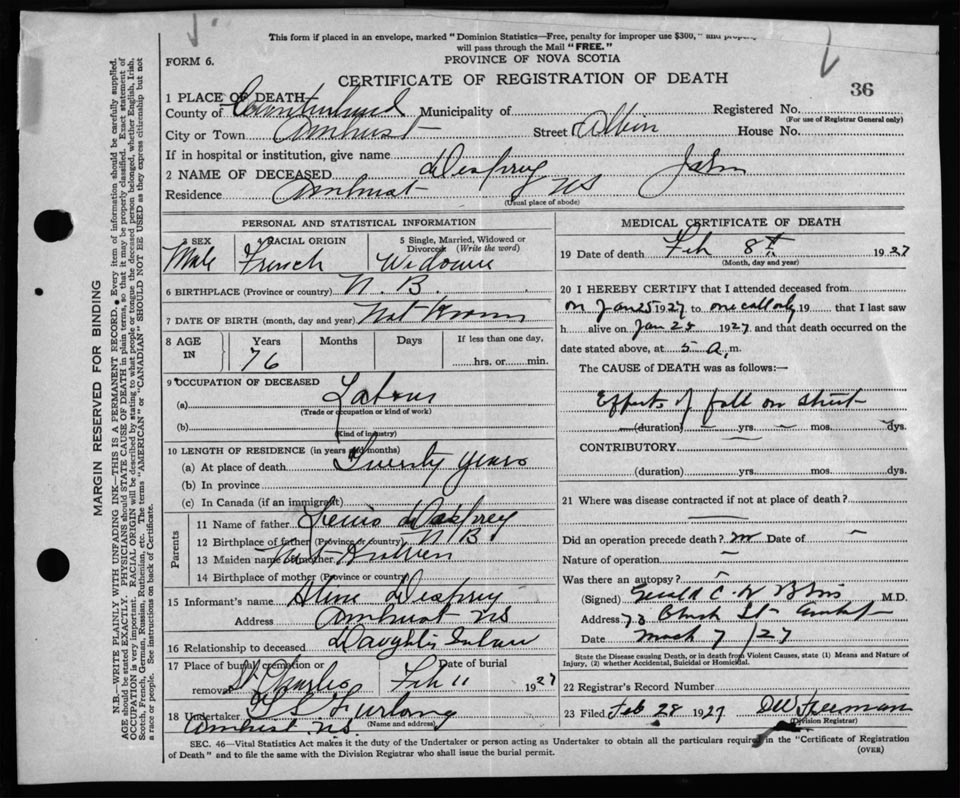 This form if placed in an envelope, marked "Dominion Statistics—Free, penalty for improper use $300," and
will pass through the Mail "FREE."
FORM 6.
PROVINCE OF NOVA SCOTIA
CERTIFICATE OF REGISTRATION OF DEATH
36
1 PLACE OF DEATH
County of Cumberland Municipality of Registered No.
(For use of Registrar General only)
City or Town Amherst Street Albion House No.
If in hospital or institution, give name
2 NAME OF DECEASED John
Residence Amherst NS
(Usual place of abode)
PERSONAL AND STATISTICAL INFORMATION
3 SEX 4 RACIAL ORIGIN 5 Single, Married, Widowed or Divorced (Write the word)
Male French Widower
6 BIRTHPLACE (Province or country) N.B.
7 DATE OF BIRTH (month, day and year) Not Known
8 AGE IN Years Months Days If less than one day,
76 hrs. or min.
9 OCCUPATION OF DECEASED
(a) Labourer
(Trade or occupation or kind of work)
(b)
(Kind of industry)
10 LENGTH OF RESIDENCE (in years and months)
(a) At place of death Twenty years
(b) In province
(c) In Canada (if an immigrant)
Parents
11 Name of father
12 Birthplace of father (Province or country) N B
13 Maiden name of mother Not Known
14 Birthplace of mother (Province or country)
15 Informant's name
Address Amherst NS
16 Relationship to deceased Daughter in law
17 Place of burial, cremation or removal St Charles Date of burial Feb 11 1927
18 Undertaker Furlong
(Name and address)
Amherst NS
MEDICAL CERTIFICATE OF DEATH
19 Date of death Feb 8th 1927
(Month, day and year)
20 I HEREBY CERTIFY that I attended deceased from
on Jan 25 1927 to one call only 19 that I last saw
h alive on Jan 28 1927 and that death occurred on
date stated above, at 5 a.m.
The CAUSE of DEATH was as follows:—
Effects of fall on street
(duration) yrs. mos. dys.
CONTRIBUTORY
(duration) yrs. mos. dys.
21 Where was disease contracted if not at place of death?
Did an operation precede death? no Date of
Nature of operation
Was there an autopsy?
(Signed) Gerald C. W Bliss M.D.
Address 73 Church St Amherst
Date March 7/27
State the Disease causing Death, or in death from Violent Causes, state (1) Means and Nature of
Injury, (2) whether Accidental, Suicidal or Homicidal.
22 Registrar's Record Number
23 Filed Feb 28 1927
(Division Registrar)
SEC. 46—Vital Statistics Act makes it the duty of the Undertaker or person acting as Undertaker to obtain all the particulars required in the "Certificate of Registration
of Death" and to file the same with the Division Registrar who shall issue the burial permit.
(OVER)
MARGIN RESERVED FOR BINDING
N.B.—WRITE PLAINLY WITH UNFADING INK—THIS IS A PERMANENT RECORD. Every item of information should be carefully supplied.
AGE should be stated EXACTLY. PHYSICIANS should STATE CAUSE OF DEATH in plain terms, so that it may be properly classified. Exact statement of
OCCUPATION is very important. RACIAL ORIGIN will be described by stating to what people or tongue the deceased person belonged, whether English, Irish,
Scotch, French, German, Russian, Ruthenian, etc. The terms "AMERICAN" or "CANADIAN" SHOULD NOT BE USED as they express citizenship but not
a race or people. See instructions on back of Certificate.